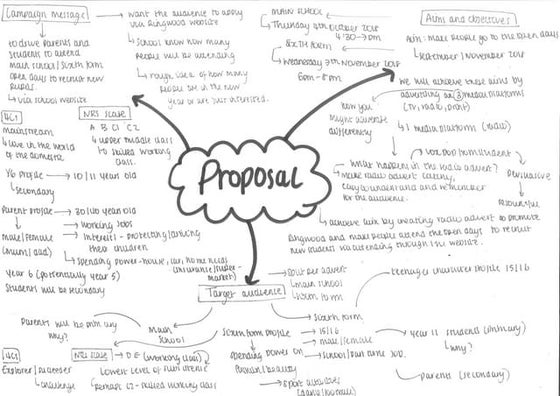 Campaign message
to drive parents and
students to attend
main school/sixth form
open days to recruit new
pupils.
↳ via school website
want the audience to apply
via Ringwood website
↳ school know how many
people will be attending
↳ rough idea of how many
people are in the new
year or are just interested.
MAIN SCHOOL
↳ Thursday 9th October 2018
4:30 → 8pm
SIXTH FORM
↳ Wednesday 7th November 2018
6pm - 8pm
Aims and objectives
Aim: make people go to the open days
↳ September/November 2018
we will achieve these aims by
advertising on 3 media platforms
(TV, radio, print)
↳ 1 media platform (radio)
how you
might advertise
differently
vox pop from student
Persuasive
what happens in the radio advert?
↳ make radio advert catchy,
easy to understand and remember
for the audience.
↳ achieve aim by creating radio advert to promote
Ringwood and make people attend the open days to recruit
new students via attending through the website.
4Cs
mainstream
↳ live in the world
of the domestic
NRS scale
A B C1 C2
↳ upper middle class
to skilled working
class.
Y6 profile → 10/11 years old
↳ secondary
Parent profile → 30/40 years old
↳ working jobs
male/female
(mum/dad)
↳ interest - protecting/caring
their children
↳ spending power - house, car, home needs
insurance/super-
market)
Year 6 (potentially year 5)
students will be secondary
Proposal
Target audience
split per advert
↳ main school
↳ sixth form
Sixth form
teenager consumer profile 15/16
Parents will be primary
Why?
Main
School
Sixth form profile → 15/16
↳ male/female
↳ school/part time job.
spending power on
fashion/beauty
↳ sport activities
(dance/football)
year 11 students (primary)
↳ Why?
parents (secondary)
4Cs
Explorer/
↳ challenge
NRS scale → D E (working class)
Lowest level of subsistence
↳ perhaps C2 - skilled working class